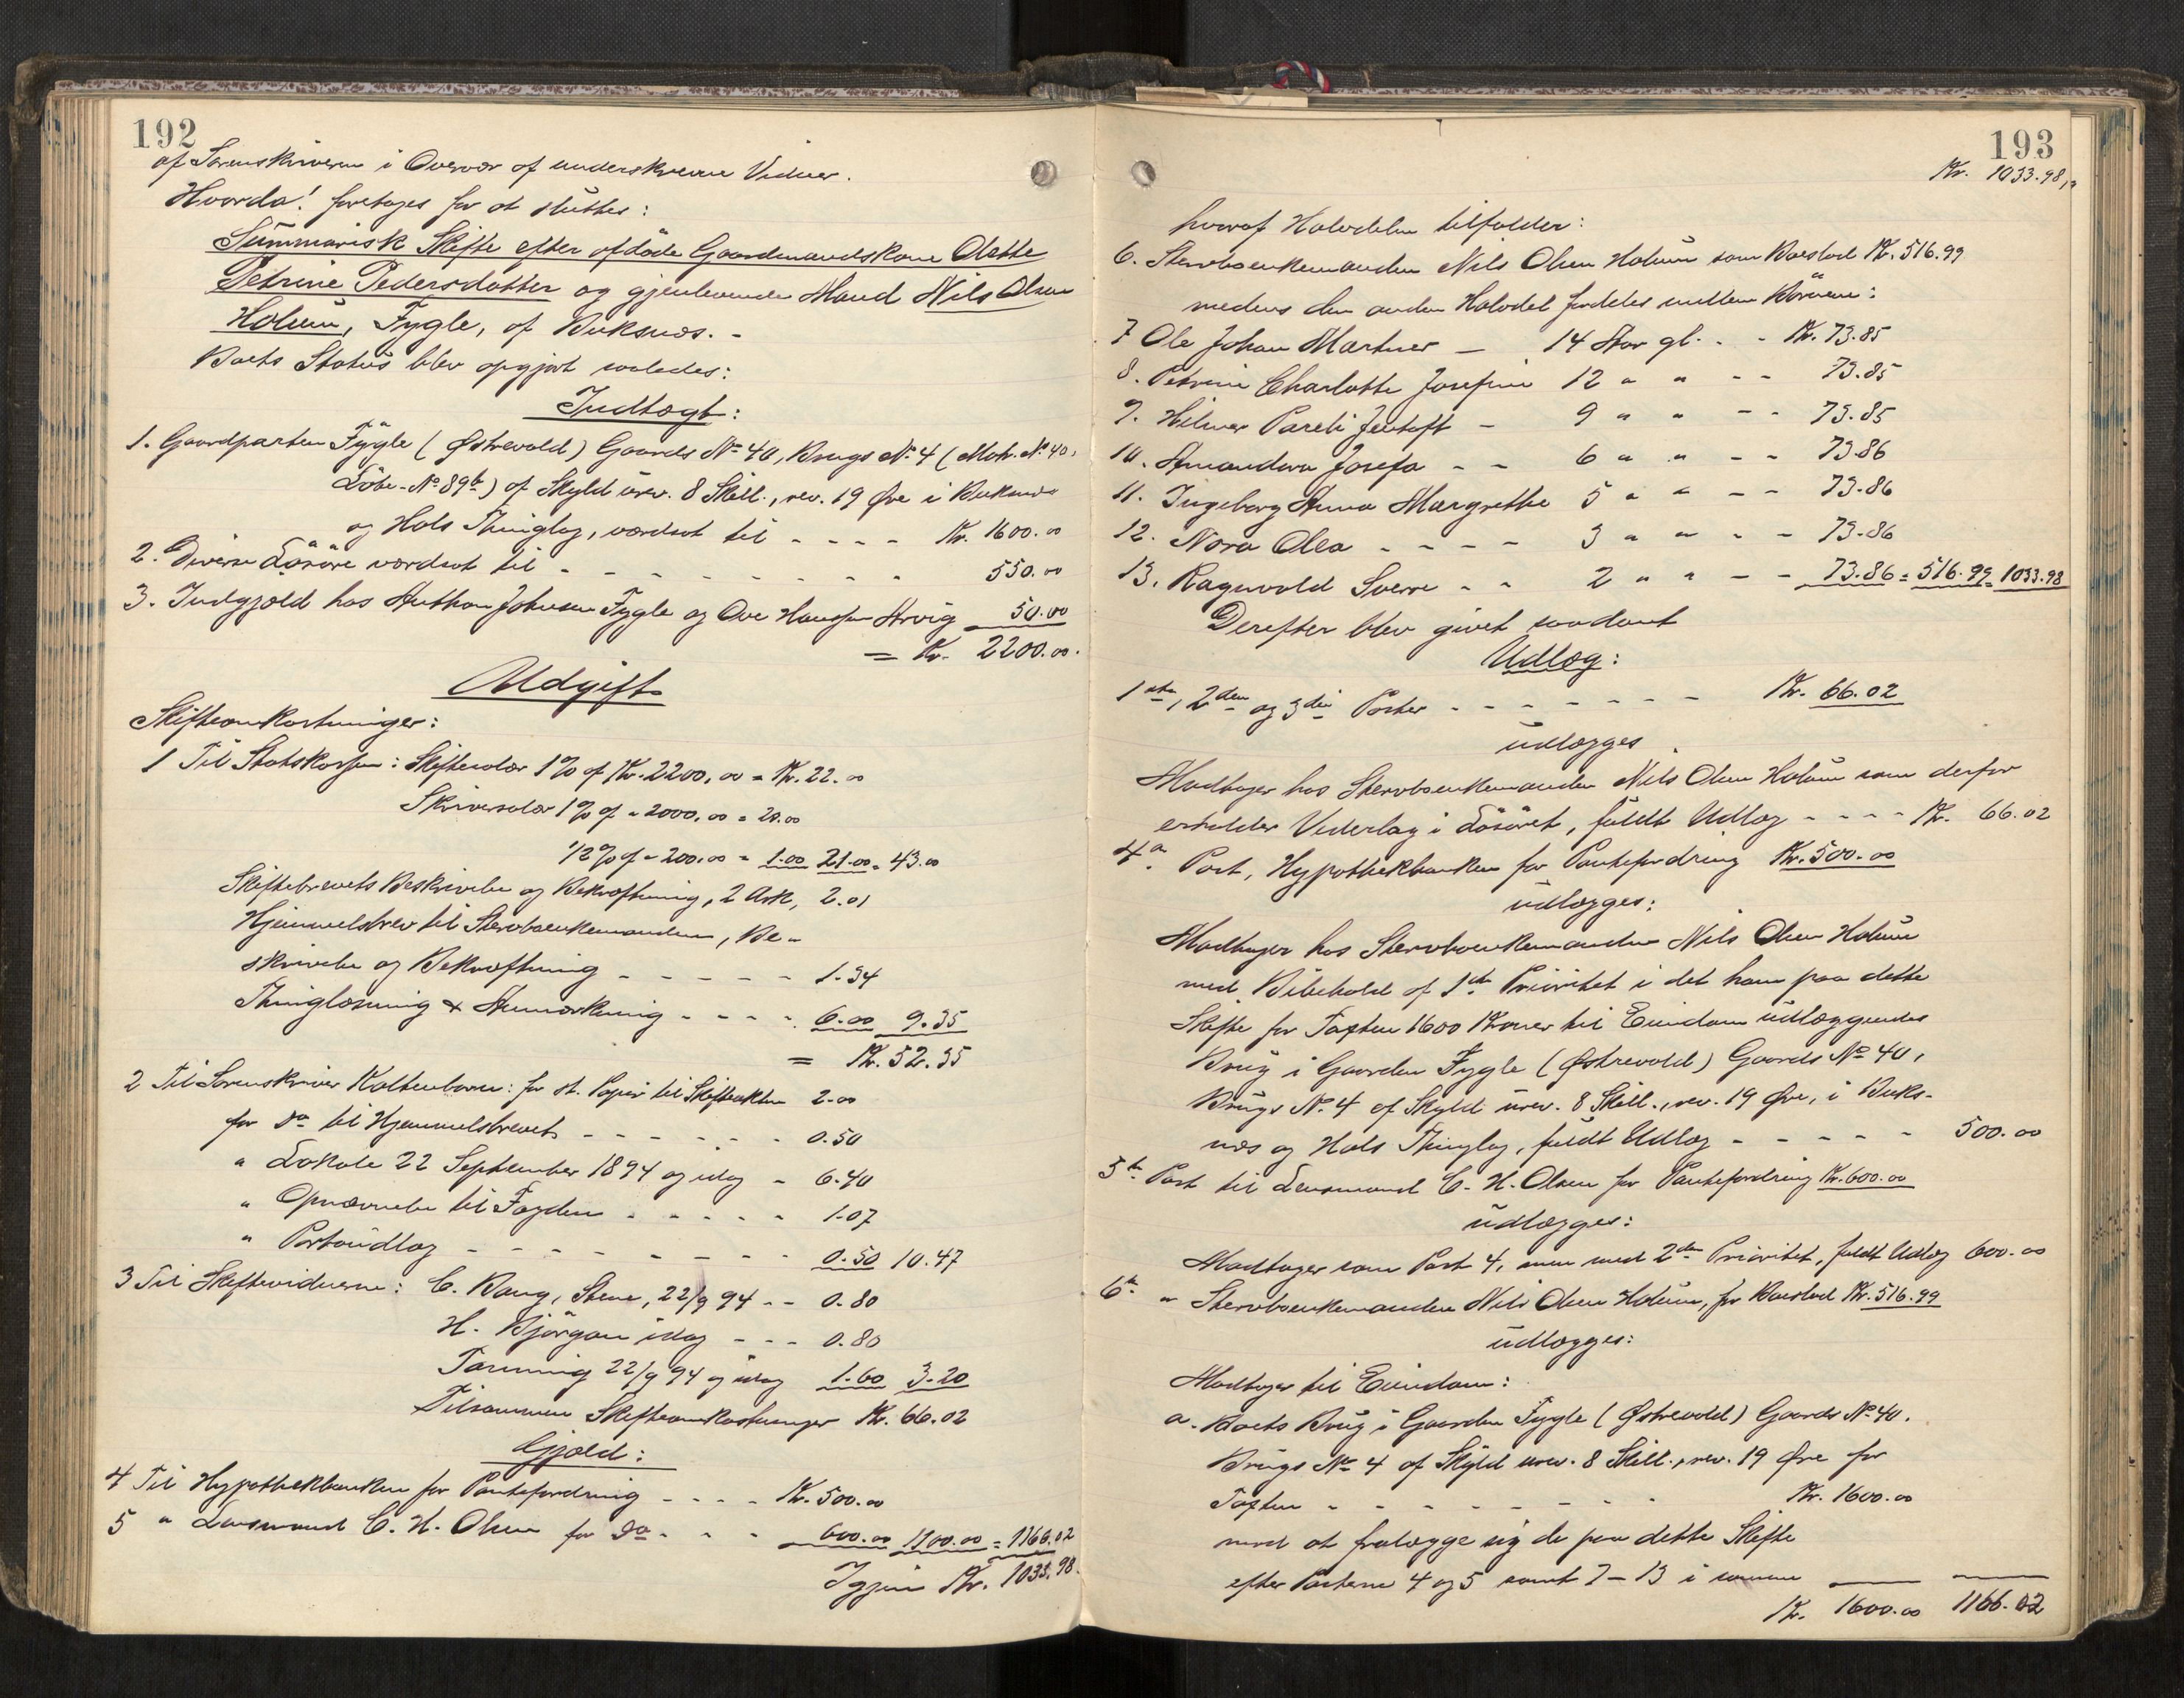 192
af Sorenskriveren i Overvær af underskrevne Vidner.
Hvorda! foretoges for at sluttes:
Summarisk Skifte efter afdøde Gaardmandskone Olette
Petrine Pedersdatter og gjenlevende Mand Nils Olsen
Holum, Fygle, af Buksnæs. -
Boets Status blev opgjort saaledes:
Indtægt:
1. Gaardparten Fygle (Østrevold) Gaards No 40, Brugs No 4 (Matr. No 40,
Löbe-No 89b) af Skyld urev. 8 Skill., rev. 19 Øre i Buksnæs
og Hols Thinglag, værdsat til - - - - Kr. 1600.00
2. Diverse Lösöre værdsat til - - - - - - - - 550.00
3. Indgjæld hos Anthon Johnsen Fygle og Ove Hansen Arvig 50.00
= Kr. 2200.00.
Udgift
Skifteomkostninger:
1 Til Statskassen: Skiftesalær 1% af Kr. 2200,00 = Kr. 22.00
Skriversalær 1% af " 2000,00 = 20.00
1/2% af " 200,00 = 1.00 21.00 = 43.00
Skiftebrevets Beskrivelse og Bekræftning, 2 Ark, 2.01
Hjemmelsbrev til Stervboenkemanden, Be-
skrivelse og Bekræftning - - - - - 1.34
Thinglæsning & Anmærkning - - - - 6.00 9.35
= Kr. 52.35
2 Til Sorenskriver Koltenborn: for st. Papir til Skifteakten 2.00
for Do til Hjemmelsbrevet - - - - - - 0.50
" Lokale 22 September 1894 og idag - 6.40
" Opnævnelse til Fogden - - - - - 1.07
" Portoudlæg - - - - - - - - 0.50 10.47
3 Til Skiftevidnerne: C. Rang, Stene, 22/9 94 - - 0.80
H. Bjørgan idag - - - 0.80
22/9 94 og idag 1.60 3.20
Tilsammen Skifteomkostninger Kr. 66.02
Gjæld:
4 Til Hypothekbanken for Pantefordring - - - - Kr. 500.00
5 " Lensmand C. H. Olsen for Do - - - 600.00 1100.00 = 1166.02
Igjen Kr. 1033.98.
193
Kr. 1033.98,
hvoraf Halvdelen tilfalder:
6. Stervboenkemanden Nils Olsen Holum som Boeslod Kr. 516.99
medens den anden Halvdel fordeles mellem Börnene:
7 Ole Johan Martner - 14 Aar gl. - - Kr. 73.85
8. Petrine Charlotte Josefine 12 " " - - 73.85
9. Hilmar Pareli Jentoft - 9 " " - - 73.85
10. Amandora Josefa - - 6 " " - - 73.86
11. Ingeborg Anna Margrethe 5 " " - - 73.86
12. Nora Olea - - - - 3 " " - - 73.86
13. Ragnvald Sverre - - 2 " " - - 73.86 = 516.99 = 1033.98
Derefter blev givet saadant
Udlæg:
1ste, 2den og 3die Poster - - - - - - - Kr. 66.02
udlægges
Modtages hos Stervboenkemanden Nils Olsen Holum som derfor
erholder Vederlag i Lösöret, fuldt Udlæg - - - - Kr. 66.02
4de Post, Hypothekbanken for Pantefordring Kr. 500.00
udlægges:
Modtages hos Stervboenkemanden Nils Olsen Holum
med Bibehold af 1ste Prioritet i det ham paa dette
Skifte for Taxten 1600 Kroner til Eiendom udlæggendes
Brug i Gaarden Fygle (Østrevold) Gaards No 40,
Brugs No 4 af Skyld urev. 8 Skill., rev. 19 Øre, i Buks-
næs og Hols Thinglag, fuldt Udlæg - - - - - 500.00
5te Post til Lensmand C. H. Olsen for Pantefordring Kr. 600.00
udlægges:
Modtages som Post 4, men med 2den Prioritet, fuldt Udlæg 600.00
6te " Stervboenkemanden Nils Olsen Holum, for Boeslod Kr. 516.99
udlægges:
Modtages til Eiendom:
a. Boets Brug i Gaarden Fygle (Østrevold) Gaards No 40,
Brugs No 4 af Skyld urev. 8 Skill., rev. 19 Øre for
Taxten - - - - - - - - Kr. 1600.00
mod at fralægge sig de paa dette Skifte
efter Posterne 4 og 5 samt 7-13 i samme
Kr. 1600.00 1166.02